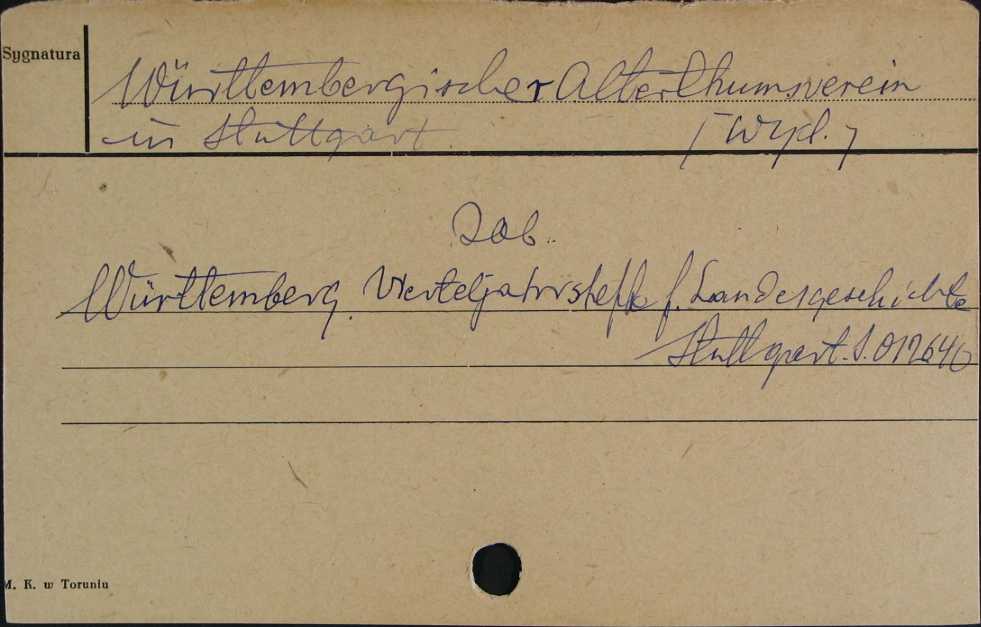 Sygnatura
Württembergischer Alterthumsverein
in Stuttgart. [Wyd.]
Zob.
Württemberg. Vierteljahrshefte f. Landesgeschichte
Stuttgart. S. 012640
M. K. w Toruniu